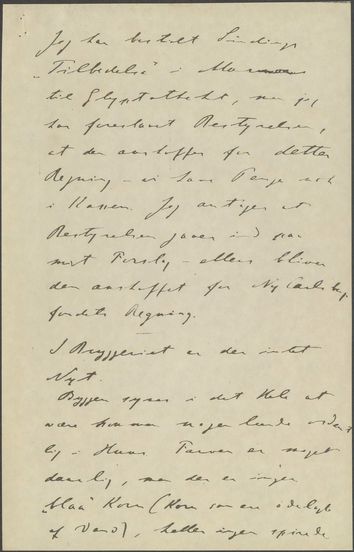 Jeg har bestilt Sindings
"Tilbedelse" i Marmor
til Glyptotheket, men jeg
har foreslaaet Bestyrelsen,
at den anskaffes for dettes
Regning – vi have Penge nok
i Kassen. Jeg antager at
Bestyrelsen gaaer ind paa
mit Forslag – ellers bliver
den anskaffet for Ny Carlsbg.
fondets Regning.
I Bryggeriet er der intet
Nyt.
Byggen synes i det Hele at
være kommen nogenlunde
lig – Hans Farven er noget
daarlig, men der er ingen
"blaa" Korn (Korn som ere ødelagte
af Vand), heller ingen spirede